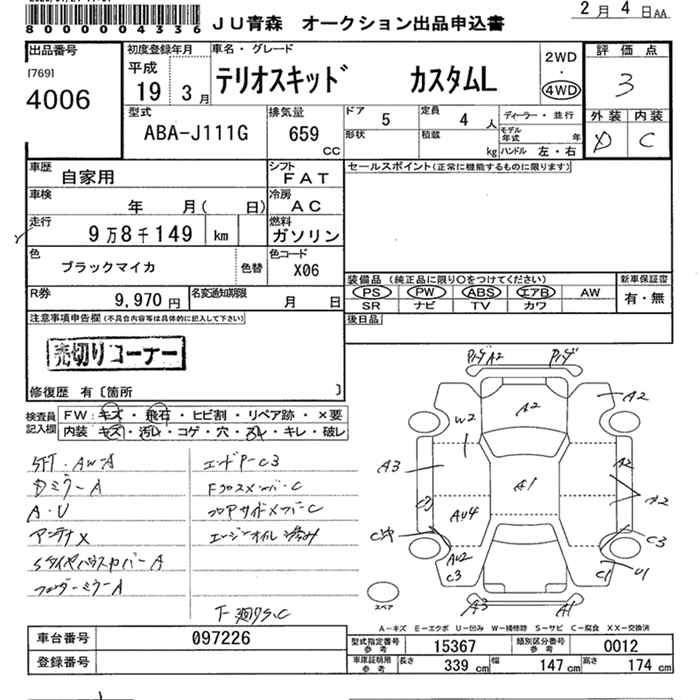 8000004336
JU青森 オークション出品申込書
2月4日AA
出品番号
[769]
4006
初度登録年月
平成
19 3月
車名・グレード
テリオスキッド カスタムL
2WD
・
4WD
評価点
3
型式
ABA-J111G
排気量
659
cc
ドア
5
形状
定員
4人
積載
kg
ディーラー・並行
モデル
年式 年
ハンドル 左・右
外装 内装
D C
車歴
自家用
シフト
FAT
セールスポイント(正常に機能するものに限ります)
車検
年 月( 日)
冷房
AC
走行
9万8千149 km
燃料
ガソリン
色
ブラックマイカ
色替
色コード
X06
R券
9,970円
名変通知期限
月 日
装備品 (純正品に限り○をつけてください)
PS PW ABS エアB AW
SR ナビ TV カワ
新車保証書
有・無
後日品
注意事項申告欄(不具合内容等は具体的に記入して下さい)
売切りコーナー
修復歴 有〔箇所 〕
検査員
記入欄
FW:キズ・飛石・ヒビ割・リペア跡・×要
内装 キズ・汚レ・コゲ・穴・スレ・キレ・破レ
SFT・AW-A
DミラーA
A・U
アンテナX
SタイヤハウスカバーA
フェンダーミラーA
エンドP-C3
Fクロスメンバー・C
フロアサイドメンバーC
エンジンオイル滲み
下廻りS.C
A2
A2
W2
A3
A1
A2
C3
AU4
A2
AU2
C3
C3
C1
U1
A3
A1
スペア
A-キズ E-エクボ U-凹み W-補修跡 S-サビ C-腐食 XX-交換済
車台番号 097226
登録番号
型式指定番号
参考
15367
類別区分番号
参考
0012
車庫証明用
参考
長さ 339cm 幅 147cm 高さ 174cm